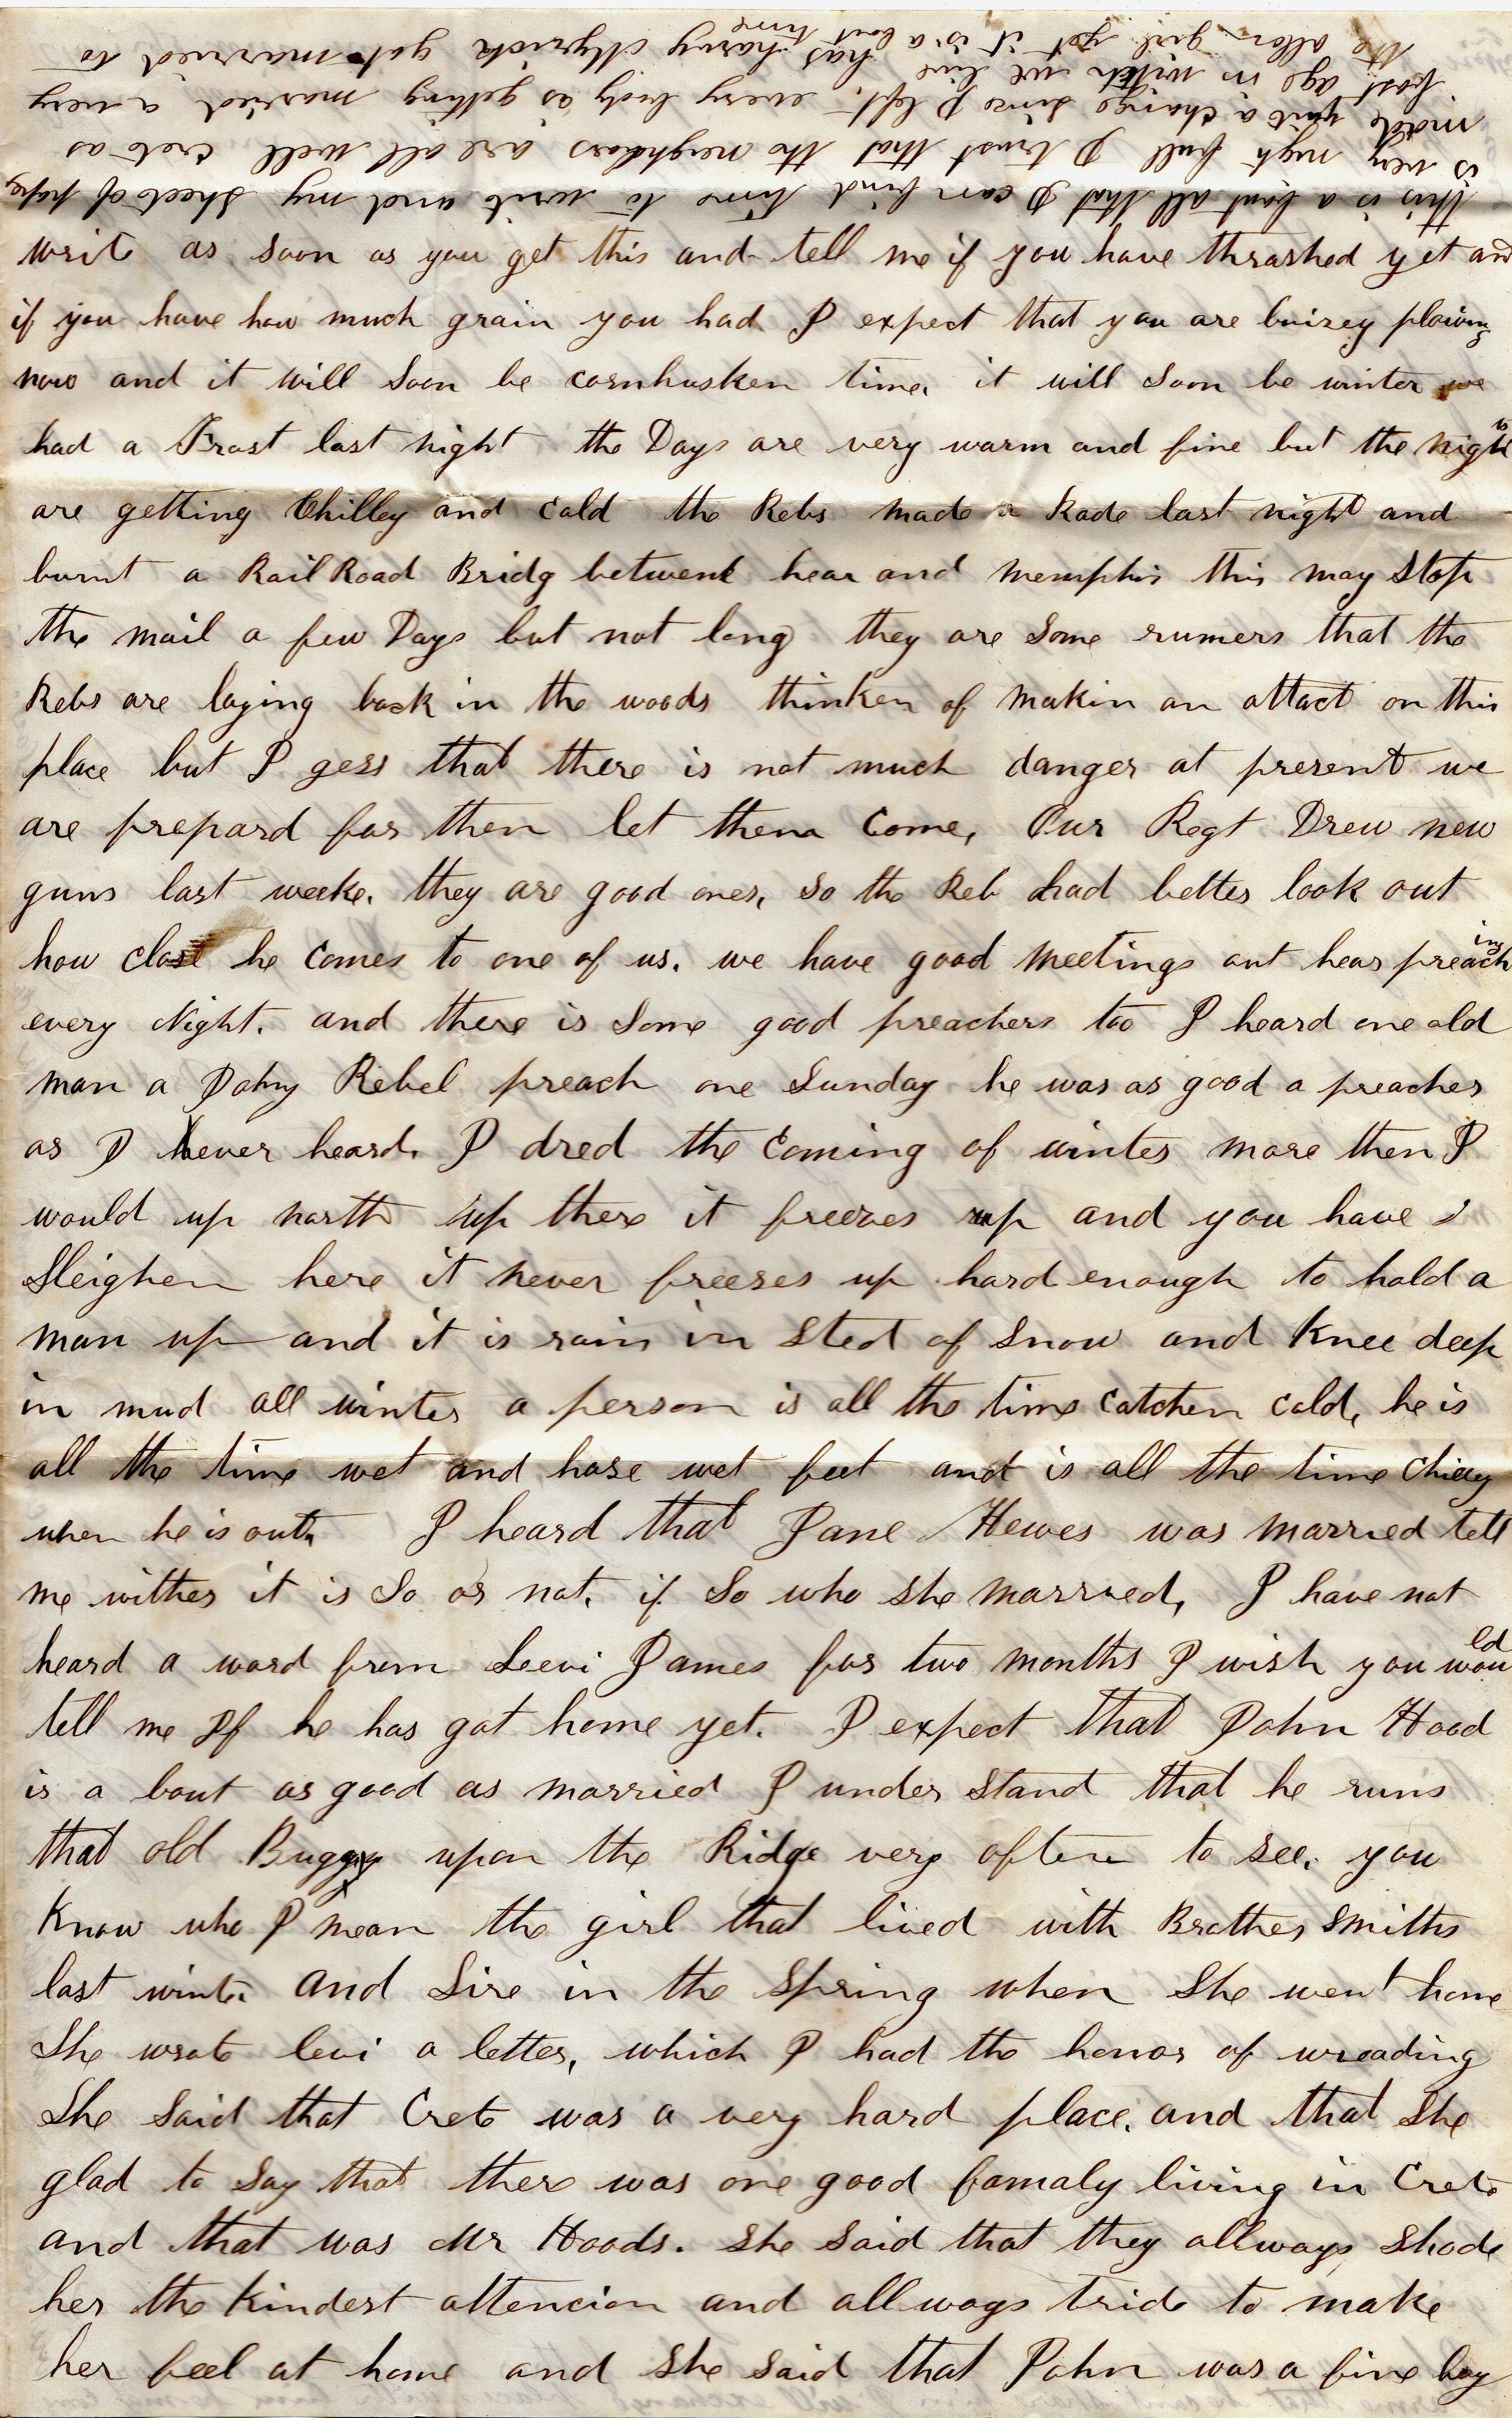 this is a bout all that I can find time to write and my sheet of paper
is very nigh full I trust that the neighbors are all well crete as
made quit a chainge since I left. every body is getting married a very
fast age in witch we live, has harvy Myrick got married to
the allen girl yet it is a bout time
write as soon as you get this and tell me if you have thrashed yet and
if you have how much grain you had I expect that you are buizey plowing
now and it will soon be cornhusken time. it will soon be winter we
had a Frost last night the Days are very warm and fine but the nights
are getting Chilley and cold the Rebs made a Rade last night and
burnt a Rail Road Bridg betwent hear and memphis this may stop
the mail a few Days but not long they are some rumers that the
Rebs are laying back in the woods thinken of makin an attact on this
place but I gess that there is not much danger at present we
are prepard for then let them come, Our Regt Drew new
guns last weeke. they are good ones, so the Reb had better look out
how close he comes to one of us. we have good meetings out hear preaching
every Night. and there is some good preachers too I heard one old
man a Johny Rebel preach one Sunday he was as good a preacher
as I hever heard. I dred the coming of winter more then I
would up north up there it freezes up and you have
Sleighen here it never freezes up hard enough to hold a
man up and it is rain in sted of snow and knee deep
in mud all winter a person is all the time catchen cold, he is
all the time wet and hase wet feet and is all the time chilly
when he is out. I heard that Jane Hewes was married tell
me wither it is so or not. if so who she married, I have not
heard a word from Leevi James for two months I wish you would
tell me If he has got home yet. I expect that John Hood
is a bout as good as married I under stand that he runs
that old Buggy upon the Ridge very often to see. you
know who I mean the girl that lived with Brother Smiths
last winter and Sire in the spring when she went home
She wrote levi a letter, which I had the honor of wreading
She said that Crete was a very hard place. and that she
glad to say that there was one good famaly living in Crete
and that was Mr Hoods. she said that they allways shode
her the kindest attencion and allways tride to make
her feel at home and she said that John was a fine boy